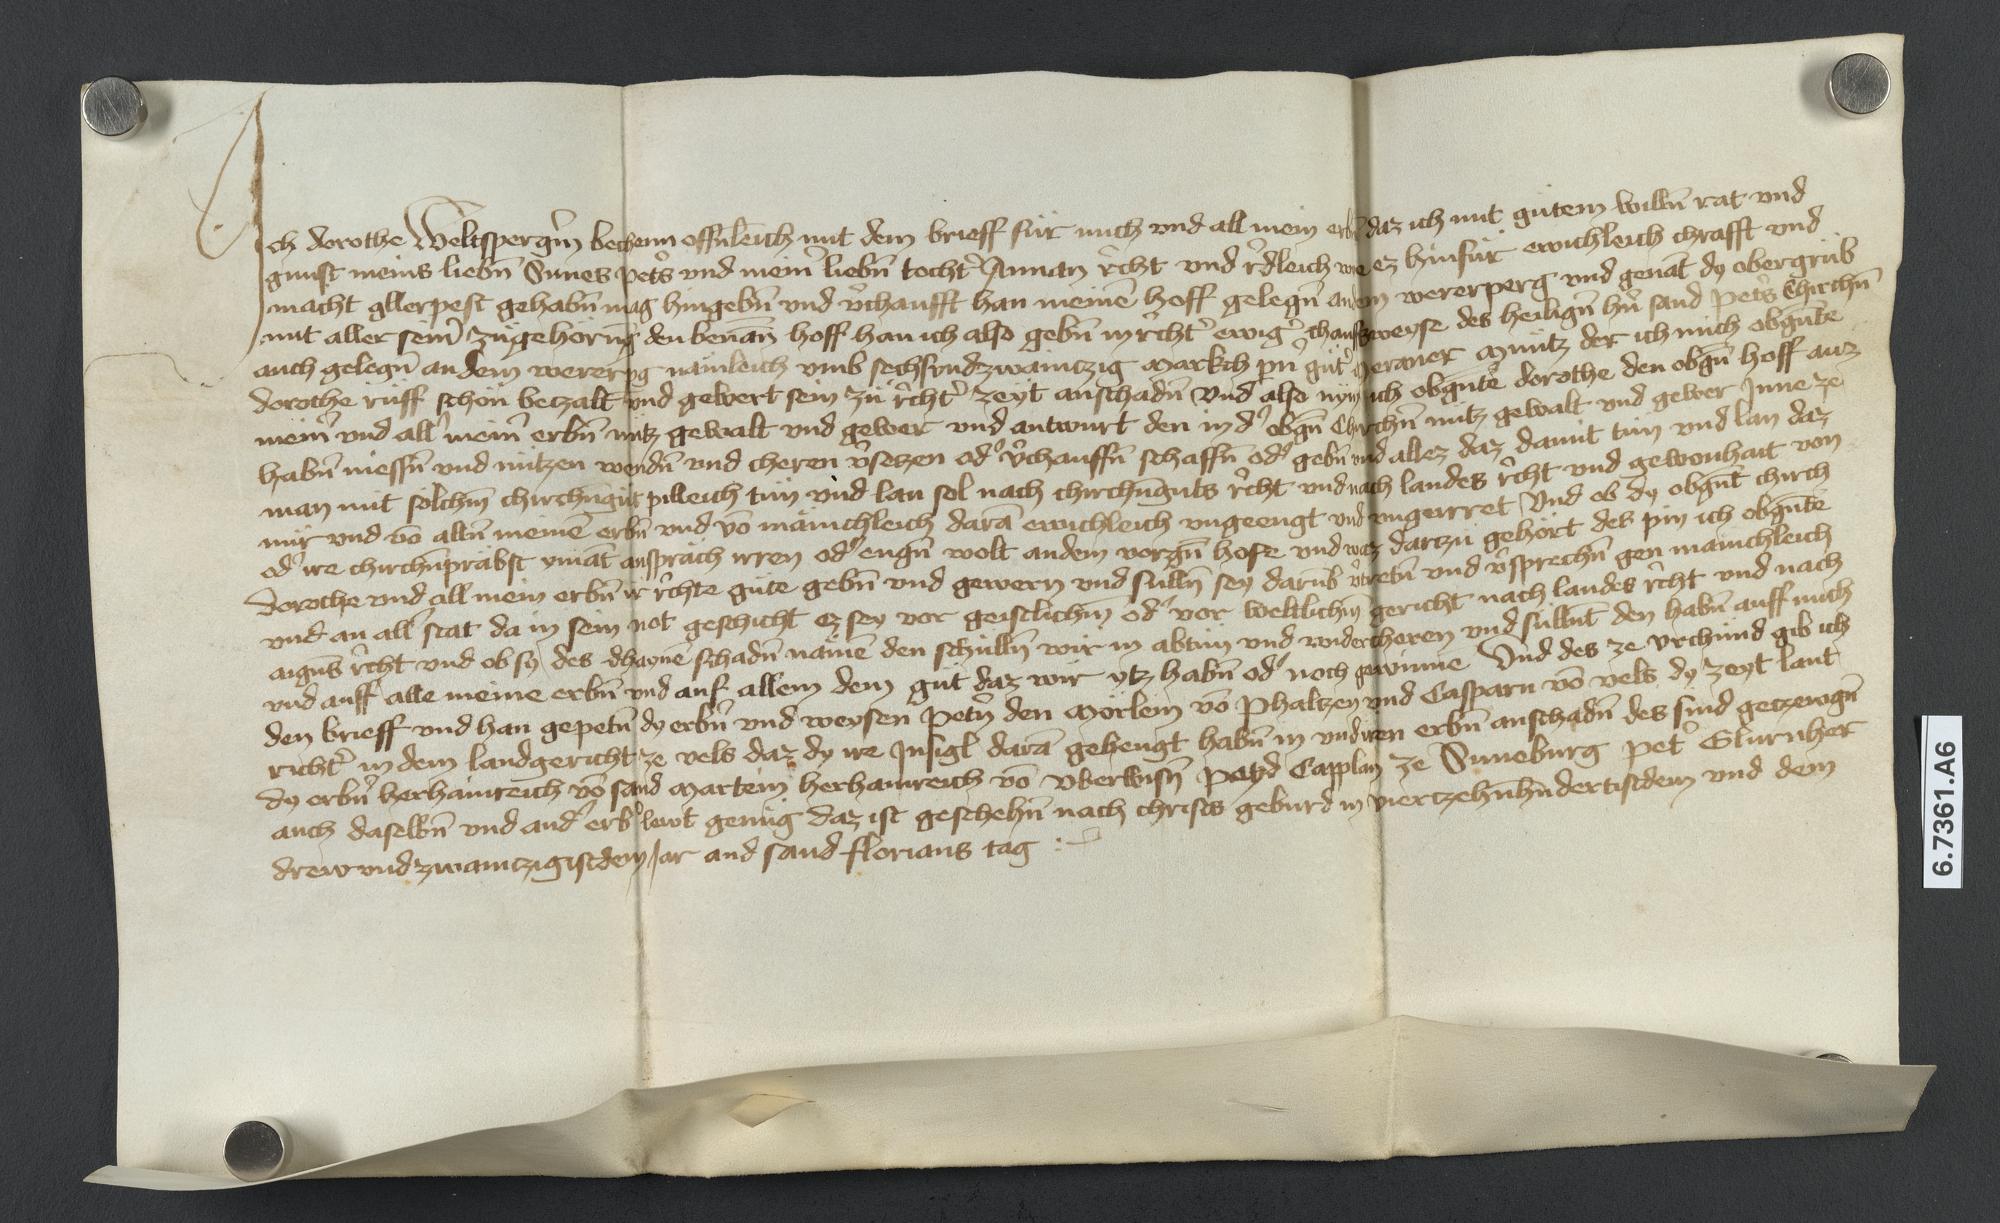 Ich dorothe Veltspergˀin bechenn offnleich mit dem brieff für mich vnd all mein erbn̄ daz ich mit gütem willn̄ rat vnd
gunst meins liebn̄ Sunes petˀs vnd meinˀ liebn̄ tochtˀ Annan rˀcht vnd rˀdleich wie ez hinfür ewichleich chrafft vnd
macht allerpest gehabn̄ mag hingebn̄ vnd vˀchaufft han meinē hoff gelegn̄ an dem wererperg vnd genāt dy obergrüb
mit aller seinˀ zügehörn̄g den benan̄ hoff han ich also gebn̄ in rˀchtˀ ewigˀ chaufsweyse des heilign̄ hˀn sand petˀs Chirchn̄
auch gelegn̄ an dem wererpg nämleich vmb sechsvndzwaintzig markch pn̄ˀ gütˀ meraner münitz der ich mich obgn̄te
dorothe rüff schön betzalt vnd gewert sein zü rˀchtˀ zeyt anschadn̄ Vnd also nym ich obgn̄te dorothe den obgn̄ hoff auz
meinˀ vnd allˀ meinˀ erbn̄ nütz gewalt vnd gewer vnd antwurt den in dˀ obgn̄ Chirchn̄ nütz gewalt vnd gewer Inne ze
habn̄ niessn̄ vnd nützen wendn̄ vnd cheren vˀsetzen odˀ vˀchauffn̄ schaffn̄ odˀ gebn̄ vnd allez daz damit tün vnd lan daz
man mit sölchm̄ chirchn̄güt pilleich tün vnd lan sol nach chirchn̄guts rˀcht vnd nach landes rˀcht vnd gewonhait von
mir vnd vō alln̄ meinē erbn̄ vnd vō mäinchleich darā ewichleich vngeengt vnd vngerret Vnd ob dy obgn̄t chirch
odˀ ire chirchn̄präbst ymāt anspräch irren odˀ engn̄ wolt an dem vorgn̄ hofe vnd waz dartzu gehört des pin ich obgn̄te
dorothe vnd all mein erbn̄ ir rˀchte güte gebn̄ vnd gewern vnd sülln̄ sey darūb vˀtretn̄ vnd vˀsprechn̄ gen mainchleich
vnd an allˀ stat da in sein not geschicht ez sey vor geistlichm̄ odˀ vor weltlichm̄ gericht nach landes rˀcht vnd nach
aigns rˀcht vnd ob sy des dhaynē schadn̄ nämē den schülln̄ wir in abtün vnd widercheren vnd süllnt den habn̄ auff mich
vnd auff alle meine erbn̄ vnd auf allem dem güt daz wir ytz habn̄ odˀ noch gewinne Vnd des ze vrchünd gib ich
den brieff vnd han gepetn̄ dy erbn̄ vnd weysen Petˀn den Mörlein vō Phaltzen vnd Casparn vō vels dy zeyt lant
richtˀ in dem landgericht ze vels daz dy ire Insigl darā gehengt habn̄ in vnd iren erbn̄ anschadn̄ des sind getzewgn̄
dy erbn̄ herhainreich vō sand Martein herhainreich vō Vberwisn̄ payd Capplan ze Suneburg petˀ Glurnher
auch daselbn̄ vnd andˀ erbˀ lewt genüg daz ist geschehn̄ nach christs geburd in viertzehn̄hundertistdem vnd dem
drew vnd zwaintzigistdem Jar and sand florians tag :~
6.7361.A6